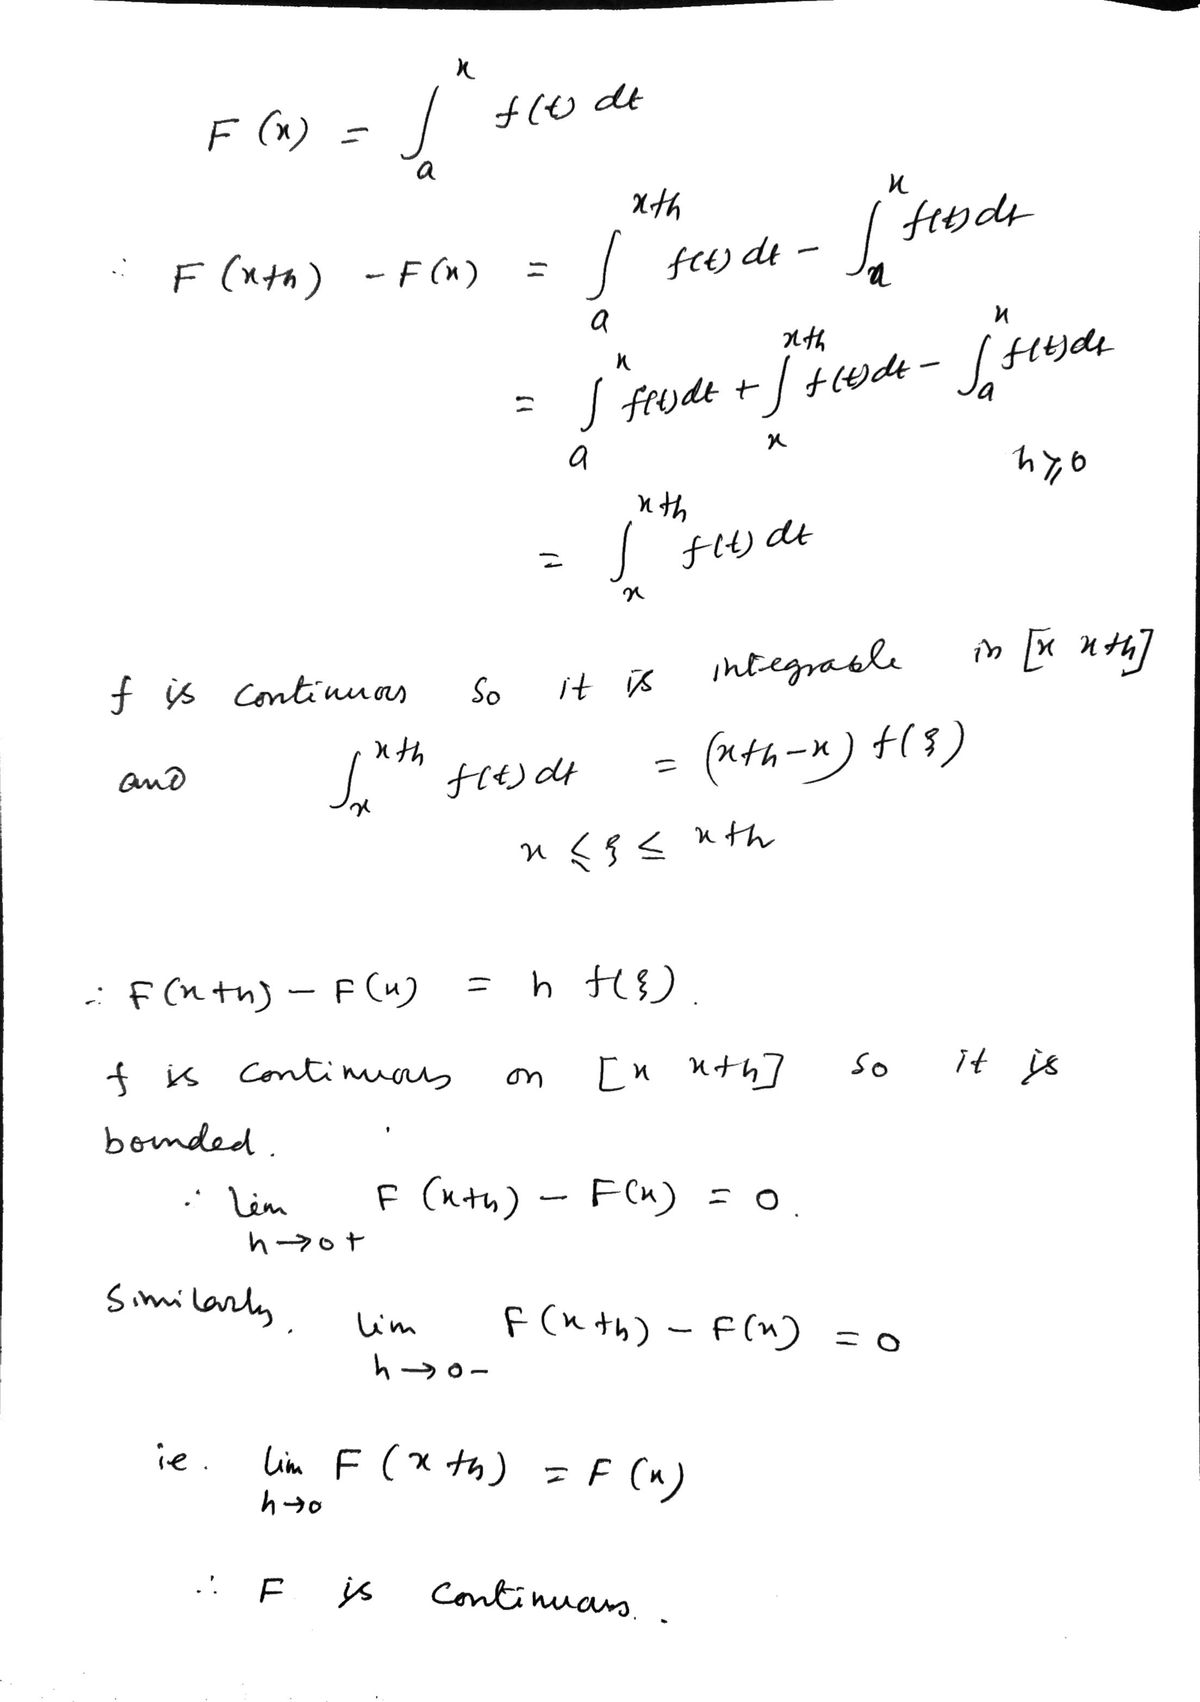 F (x) = ∫_a^x f(t) dt
∴ F (x+h) - F(x) = ∫_a^{x+h} f(t) dt - ∫_a^x f(t) dt
= ∫_a^x f(t) dt + ∫_x^{x+h} f(t) dt - ∫_a^x f(t) dt
h ⩾ 0
= ∫_x^{x+h} f(t) dt
f is continuous so it is integrable in [x x+h]
and ∫_x^{x+h} f(t) dt = (x+h-x) f(ξ)
x ≤ ξ ≤ x+h
∴ F(x+h) - F(x) = h f(ξ).
f is continuous on [x x+h] so it is
bounded.
∴ lim_{h→0+} F (x+h) - F(x) = 0.
Similarly, lim_{h→0-} F(x+h) - F(x) = 0
ie. lim_{h→0} F (x+h) = F(x)
∴ F is continuous.